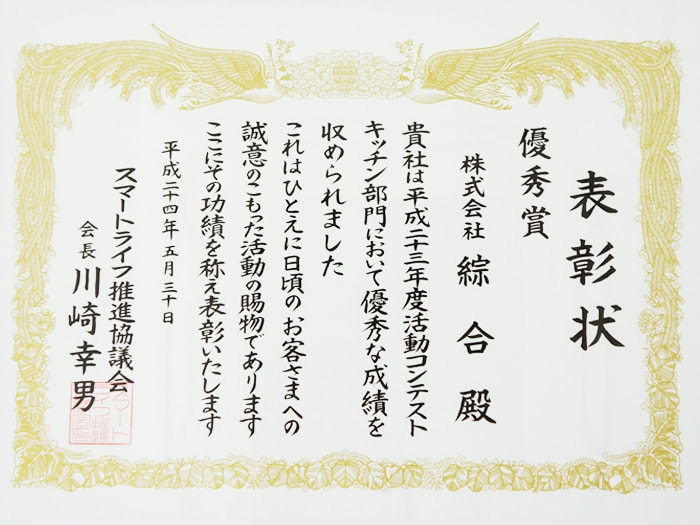 表彰状
優秀賞
株式会社 綜合殿
貴社は平成二十三年度活動コンテスト
キッチン部門において優秀な成績を
収められました
これはひとえに日頃のお客さまへの
誠意のこもった活動の賜物であります
ここにその功績を称え表彰いたします
平成二十四年五月三十日
スマートライフ推進協議会
会長 川崎幸男